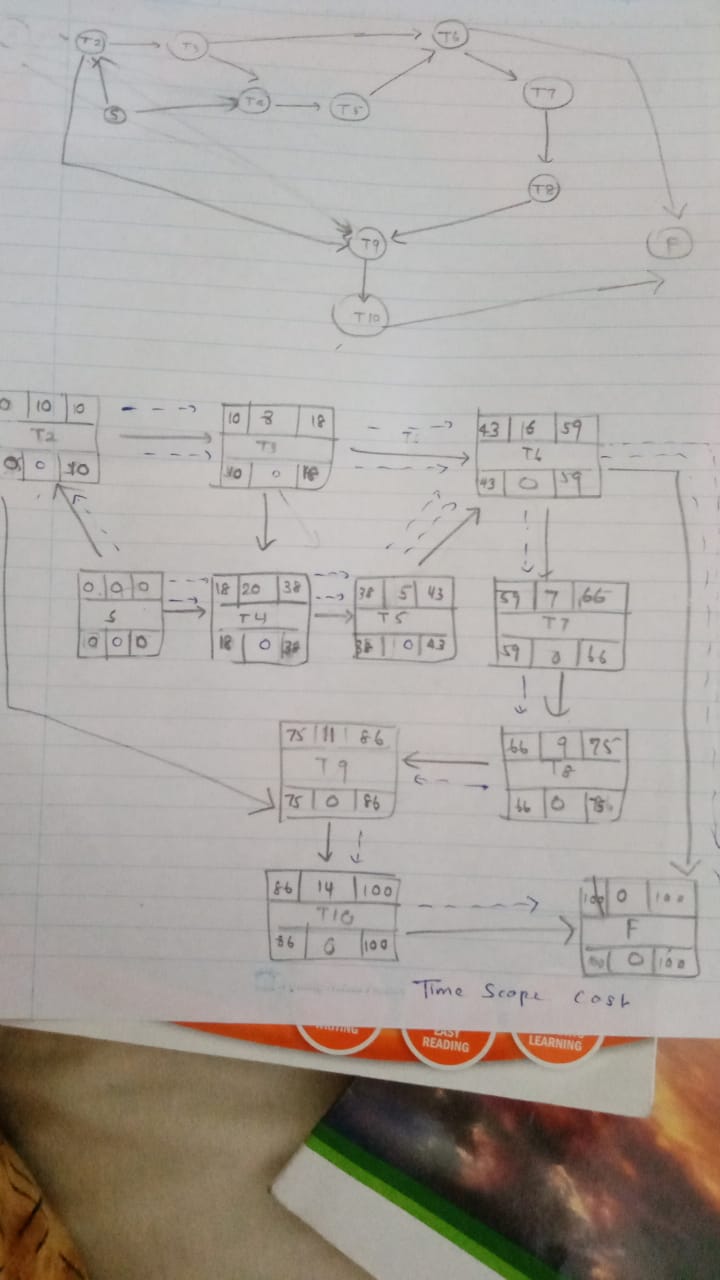 T2 T3 T6
S T4 T5 T7
T8
T9 F
T10
0 10 10
T2
0 0 10
10 8 18
T3
10 0 18
43 16 59
T6
43 0 59
0 0 0
S
0 0 0
18 20 38
T4
18 0 38
38 5 43
T5
38 0 43
59 7 66
T7
59 0 66
75 11 86
T9
75 0 86
66 9 75
T8
66 0 75
86 14 100
T10
86 0 100
100 0 100
F
100 0 100
Time Scope Cost
WRITING EASY READING LEARNING